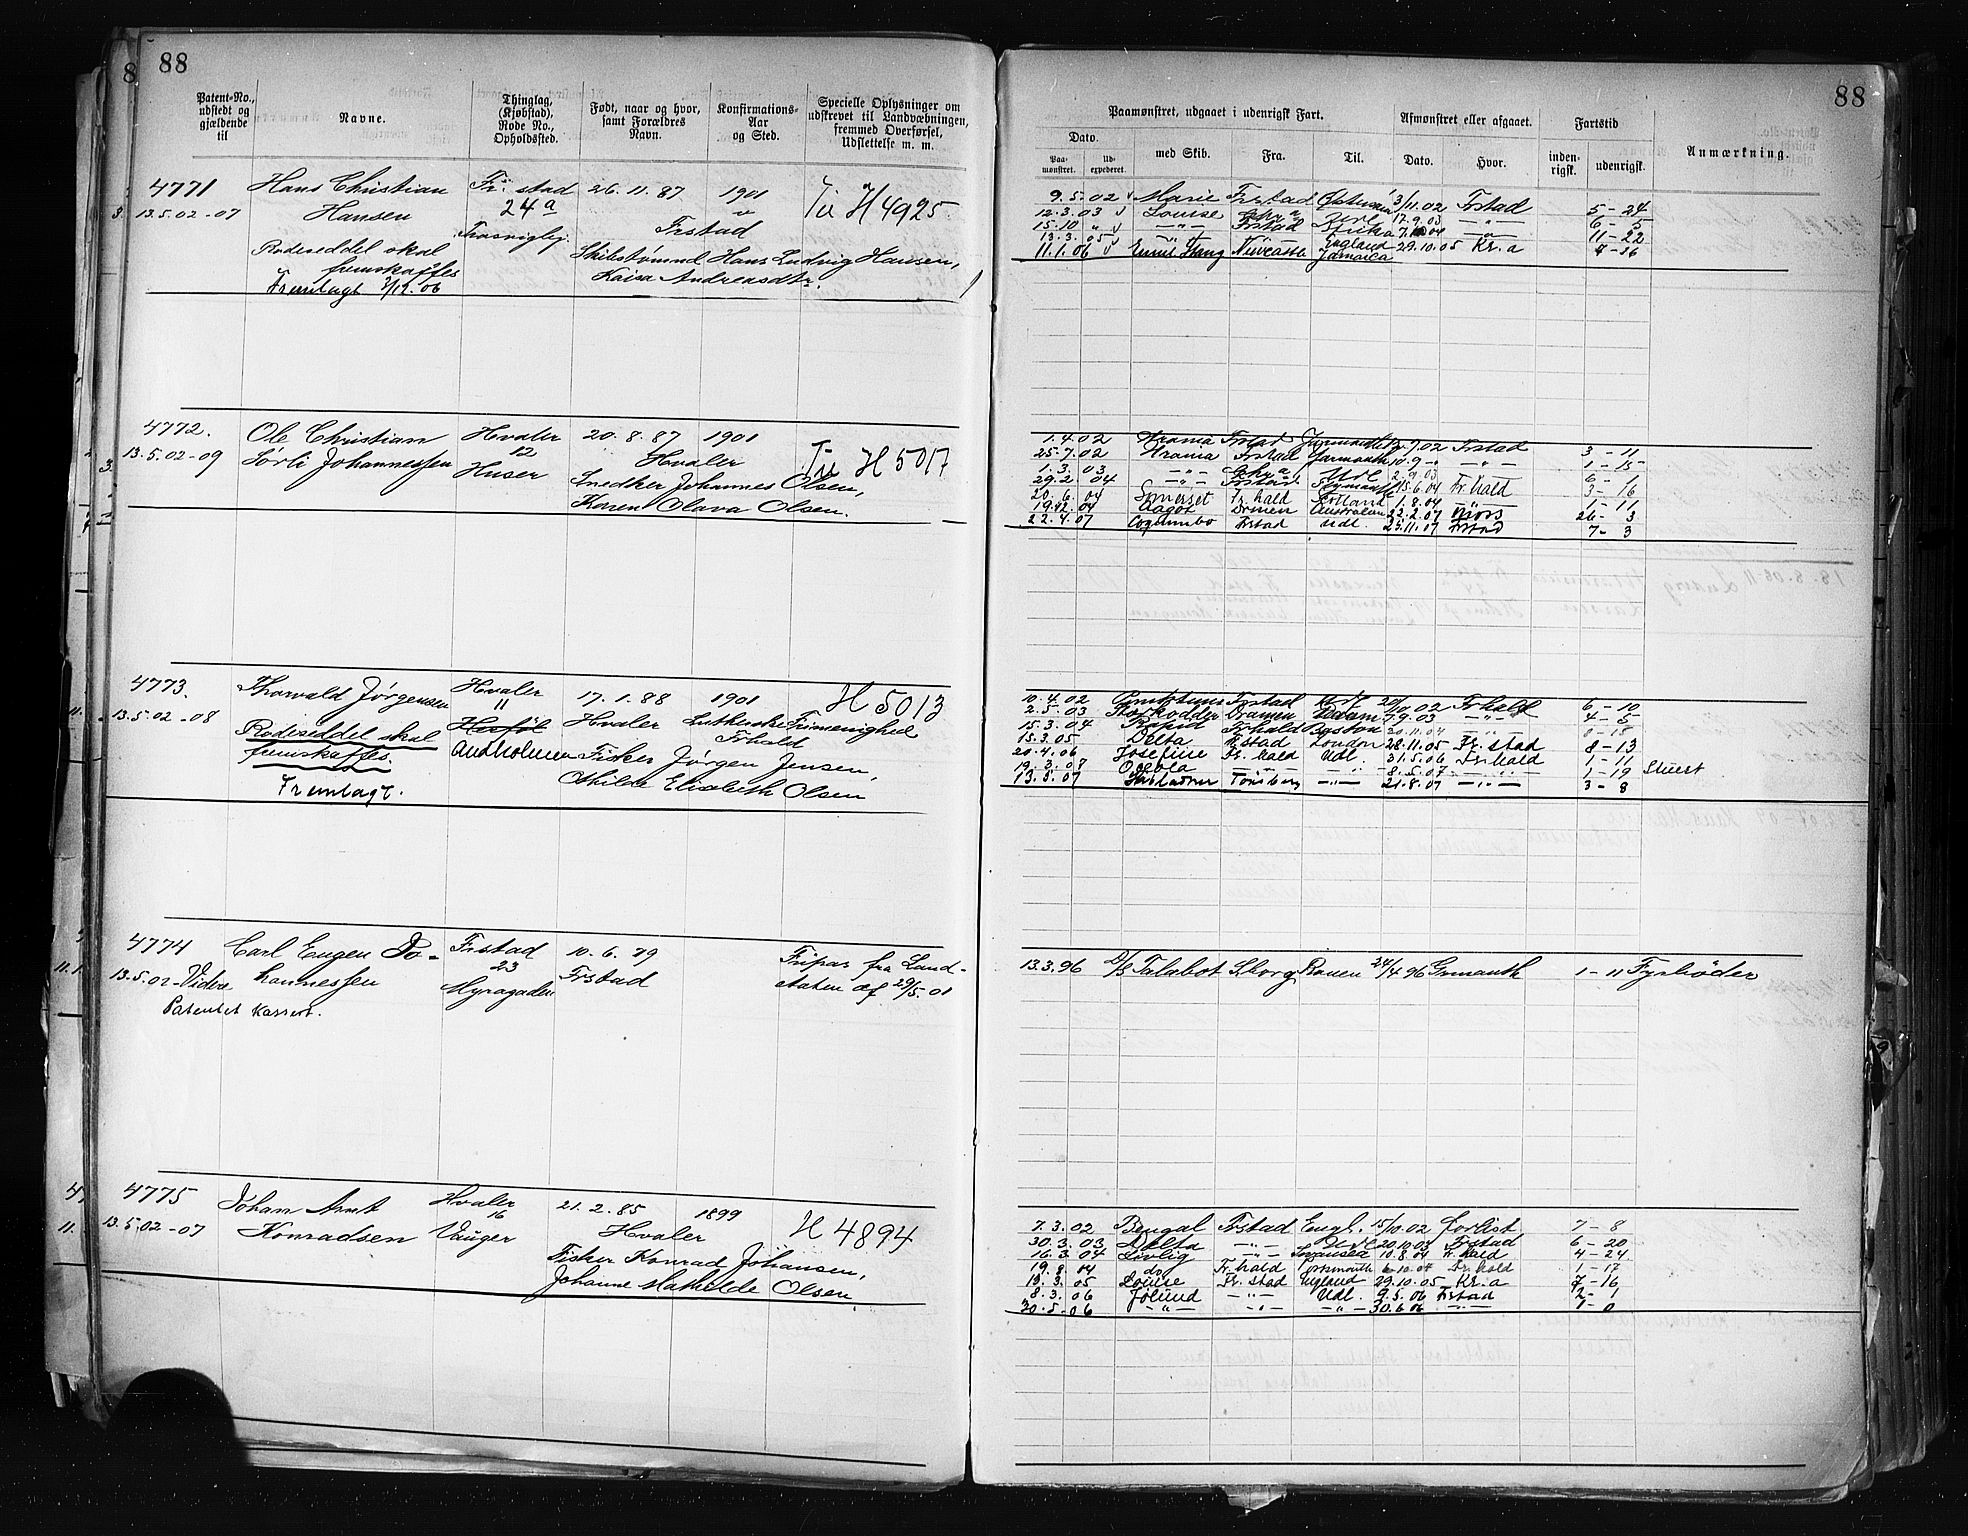 88
Patent-No., udstedt og gjældende til
Navne.
Thinglag, (Kjøbstad), Rode No., Opholdssted.
Født, naar og hvor, samt Forældres Navn.
Konfirmations-Aar og Sted.
Specielle Oplysninger om udskrevet til Landvæbningen, fremmed Overførsel, Udslettelse m. m.
4771 Hans Christian Fr. stad 26. 11. 87 1901 Til H 4925
13.5.02-07 Hansen 24a Frstad
Rodeseddel skal Skibstømmd Hans Ludvig Hansen,
fremskaffes Kaisa Andreasdtr.
Fremlagt 3/12.06
4772. Ole Christian Hvaler 20. 8. 87 1901 Til H 5017
13.5.02-09 Sørli Johannessen 12 Hvaler
Huser Snedker Johannes Olsen,
Karen Olava Olsen.
4773. Thorvald Jørgensen Hvaler 17. 1. 88 1901 H 5013
13.5.02-08 11 Hvaler Lutherske Frimenighed
Rodeseddel skal Frhald
fremskaffes. Andholmen Fisker Jørgen Jensen,
Othilde Elisabeth Olsen
Fremlagt.
4774 Carl Eugen Jo- Frstad 10. 6. 79 Fripas fra Land-
13.5.02-Videre hannessen 23 Frstad staten af 29/5. 01
Myragaden
Patentet kassert.
4775 Johan Arnt Hvaler 21. 2. 85 1899 H 4894
13.5.02-07 Konradsen 16 Hvaler
Vauger Fisker Konrad Johansen,
Johanne Mathilde Olsen
88
Paamønstret, udgaaet i udenrigsk Fart.
Afmønstret eller afgaaet.
Fartstid
Dato.
Paamønstret.
Udexpederet.
med Skib.
Fra.
Til.
Dato.
Hvor.
indenrigsk.
udenrigsk.
Anmærkning.
9.5.02 Marie Frstad 3/11.02 Frstad 5-24
12.3.03 Louise Chr.a Udl 17.9.03 -"- 6-5
15.10 " -"- Frstad Afrika -"- 11-22
13.3.05 -"- England 29.10.05 Kr.a 7-16
11.1.06 Jamaica
1.4.02 Frstad Yarmouth 02 Frstad 3-11
25.7.02 Frstad Yarmouth 10.9-"- -"- 1-15
1.3.03 -"- Chr.a Udl 03 6-
29.2.04 -"- Frstad 15.6.04 Fr.hald 3-16
20.6.04 Somerset Fr.hald 1.8.04 1-11
19.12.04 Aagot Drmen Australien 22.2.07 26-3
22.4.07 Frstad Udl. 25.11.07 Frstad 7-3
10.4.02 Frstad 02 Frhald 6-10
2.5.03 Starkodder Dramen 7.9.03 -"- 4-5
15.3.04 Rapid Frhald Boston 20.11.04 -"-
15.3.05 Delta Fr.stad London 28.11.05 Fr.stad 8-13
20.4.06 Josefine Fr.hald Udl. 31.5.06 Fr.hald 1-11
19.3.07 -"- -"- 8.5.07 -"- 1-19 Stuert
13.5.07 Tønsberg -"- 21.8.07 -"- 3-8
13.3.96 D/S Talabot Sborg Rouen 24/4 96 1-11 Fyrbøder
7.3.02 Bengal Frstad Engl. 15/10.02 7-8
30.3.03 Delta -"- Udl 20.10.03 Frstad 6-20
16.3.04 Lovlig -"- Swansea 10.8.04 Fr.hald 4-24
19.8.04 do Fr.hald 6.10.04 Fr.hald 1-17
13.3.05 Louise Fr.stad England 29.10.05 Kr.a 7-16
8.3.06 Jølund -"- Udl. 9.5.06 Frstad 2-1
30.5.06 -"- -"- -"- 30.6.06 -"- 1-0